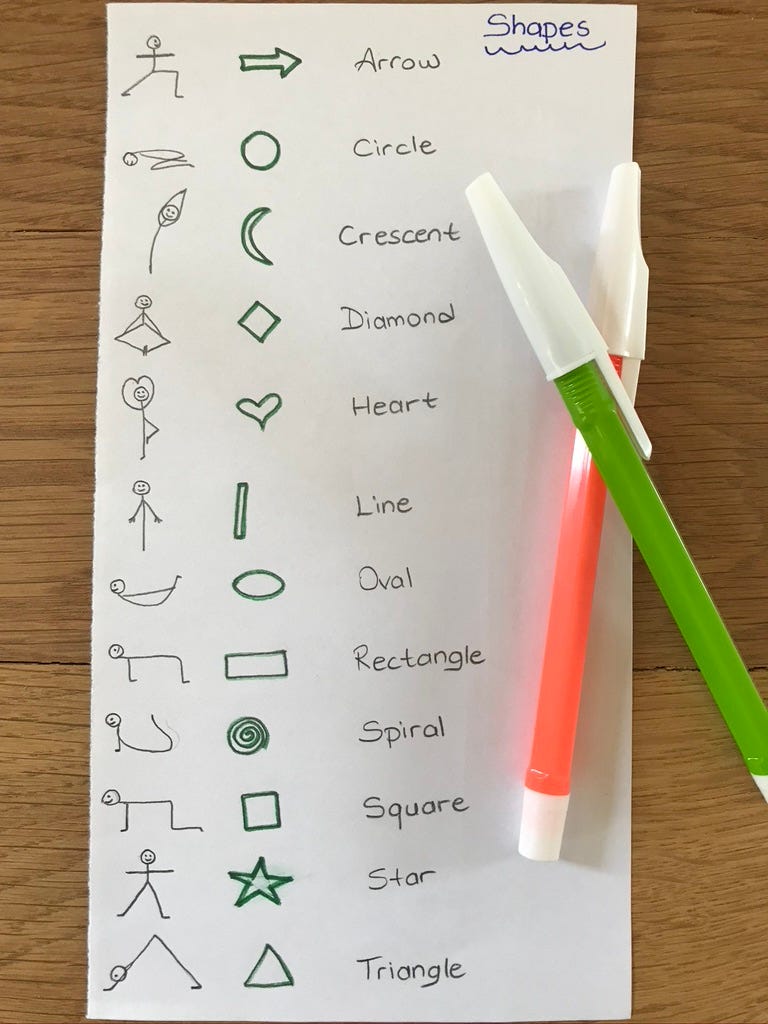 Shapes
Arrow
Circle
Crescent
Diamond
Heart
Line
Oval
Rectangle
Spiral
Square
Star
Triangle